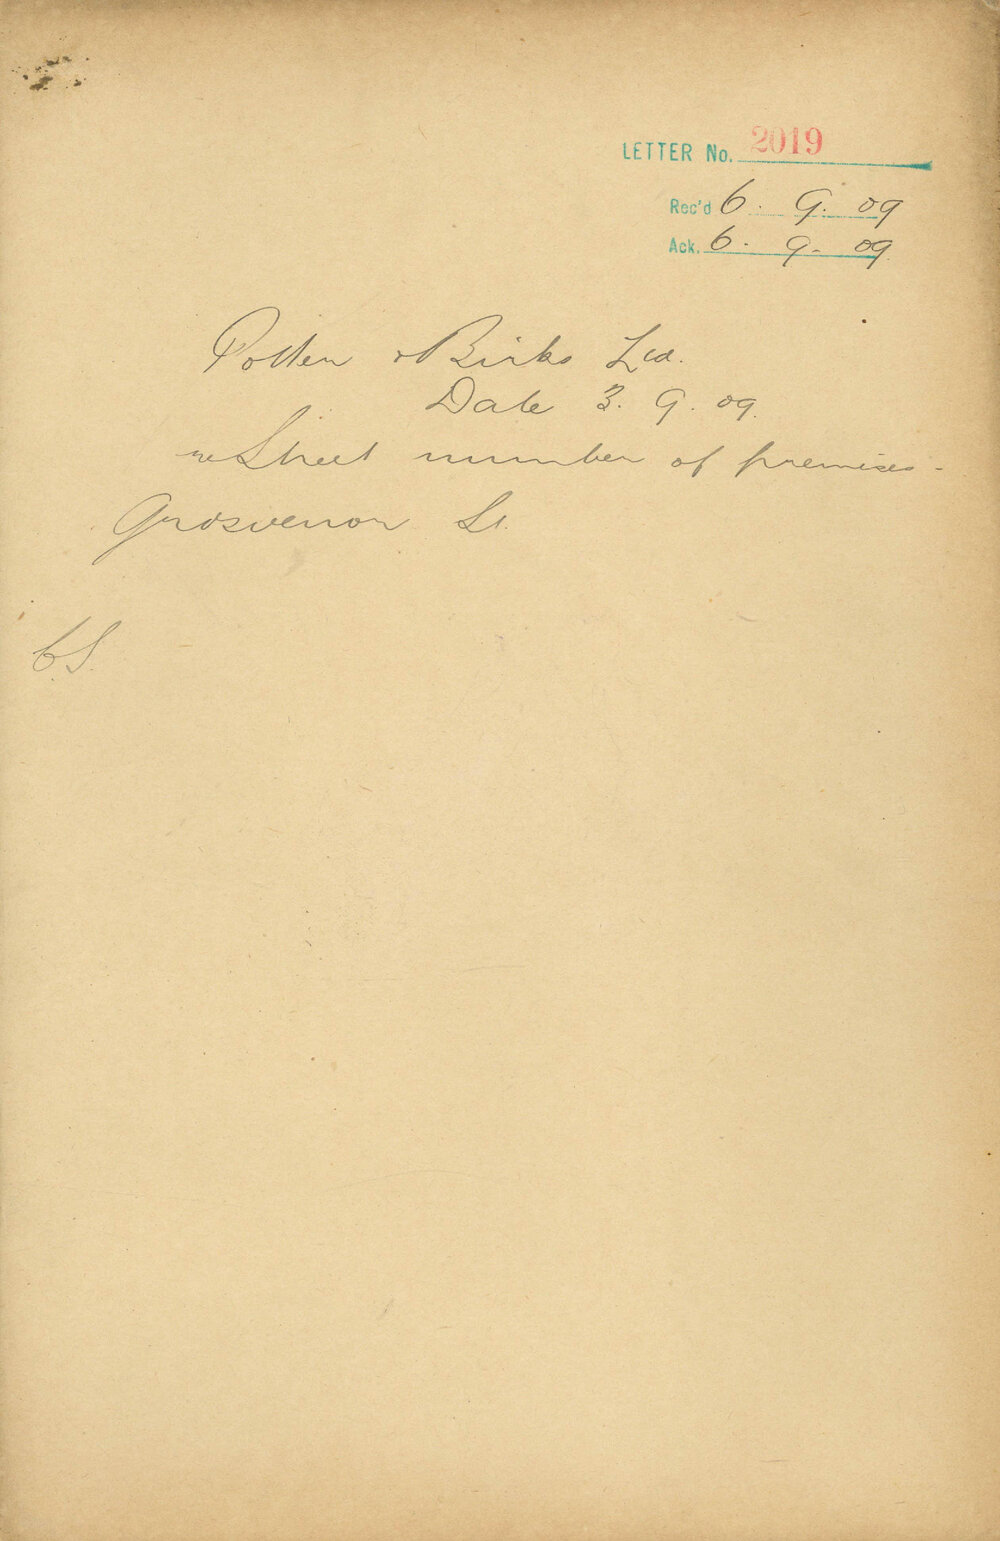 LETTER No. 2019
Rec'd 6. 9. 09
Ack. 6. 9. 09
Potten & Birks Ltd.
Date 3. 9. 09.
re Street number of premises -
Grosvenor St.
C.S.